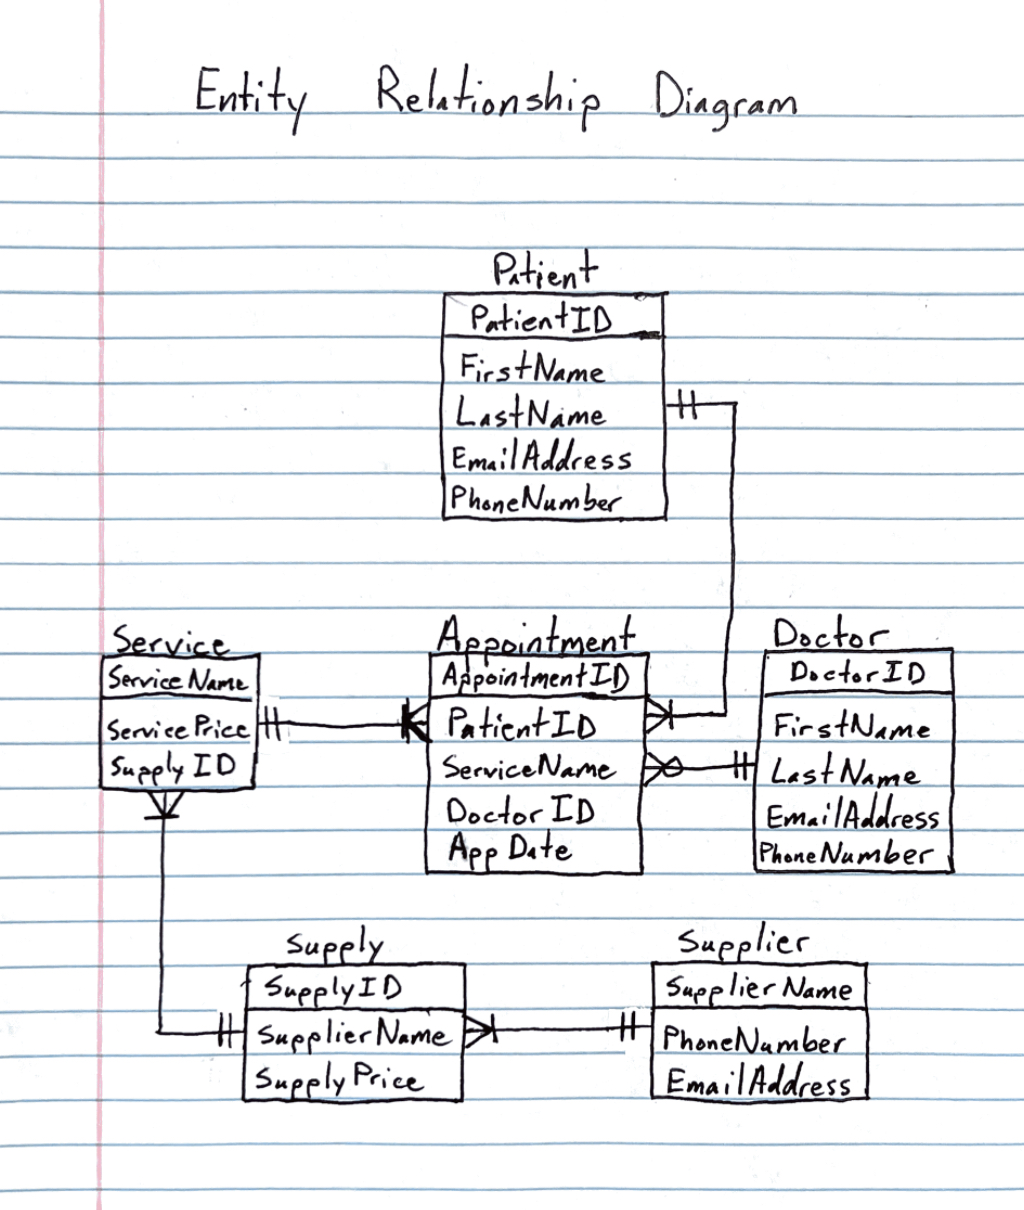 Entity Relationship Diagram
Patient
PatientID
FirstName
LastName
EmailAddress
PhoneNumber
Service
ServiceName
ServicePrice
SupplyID
Appointment
AppointmentID
PatientID
ServiceName
DoctorID
AppDate
Doctor
DoctorID
FirstName
LastName
EmailAddress
PhoneNumber
Supply
SupplyID
SupplierName
SupplyPrice
Supplier
SupplierName
PhoneNumber
EmailAddress